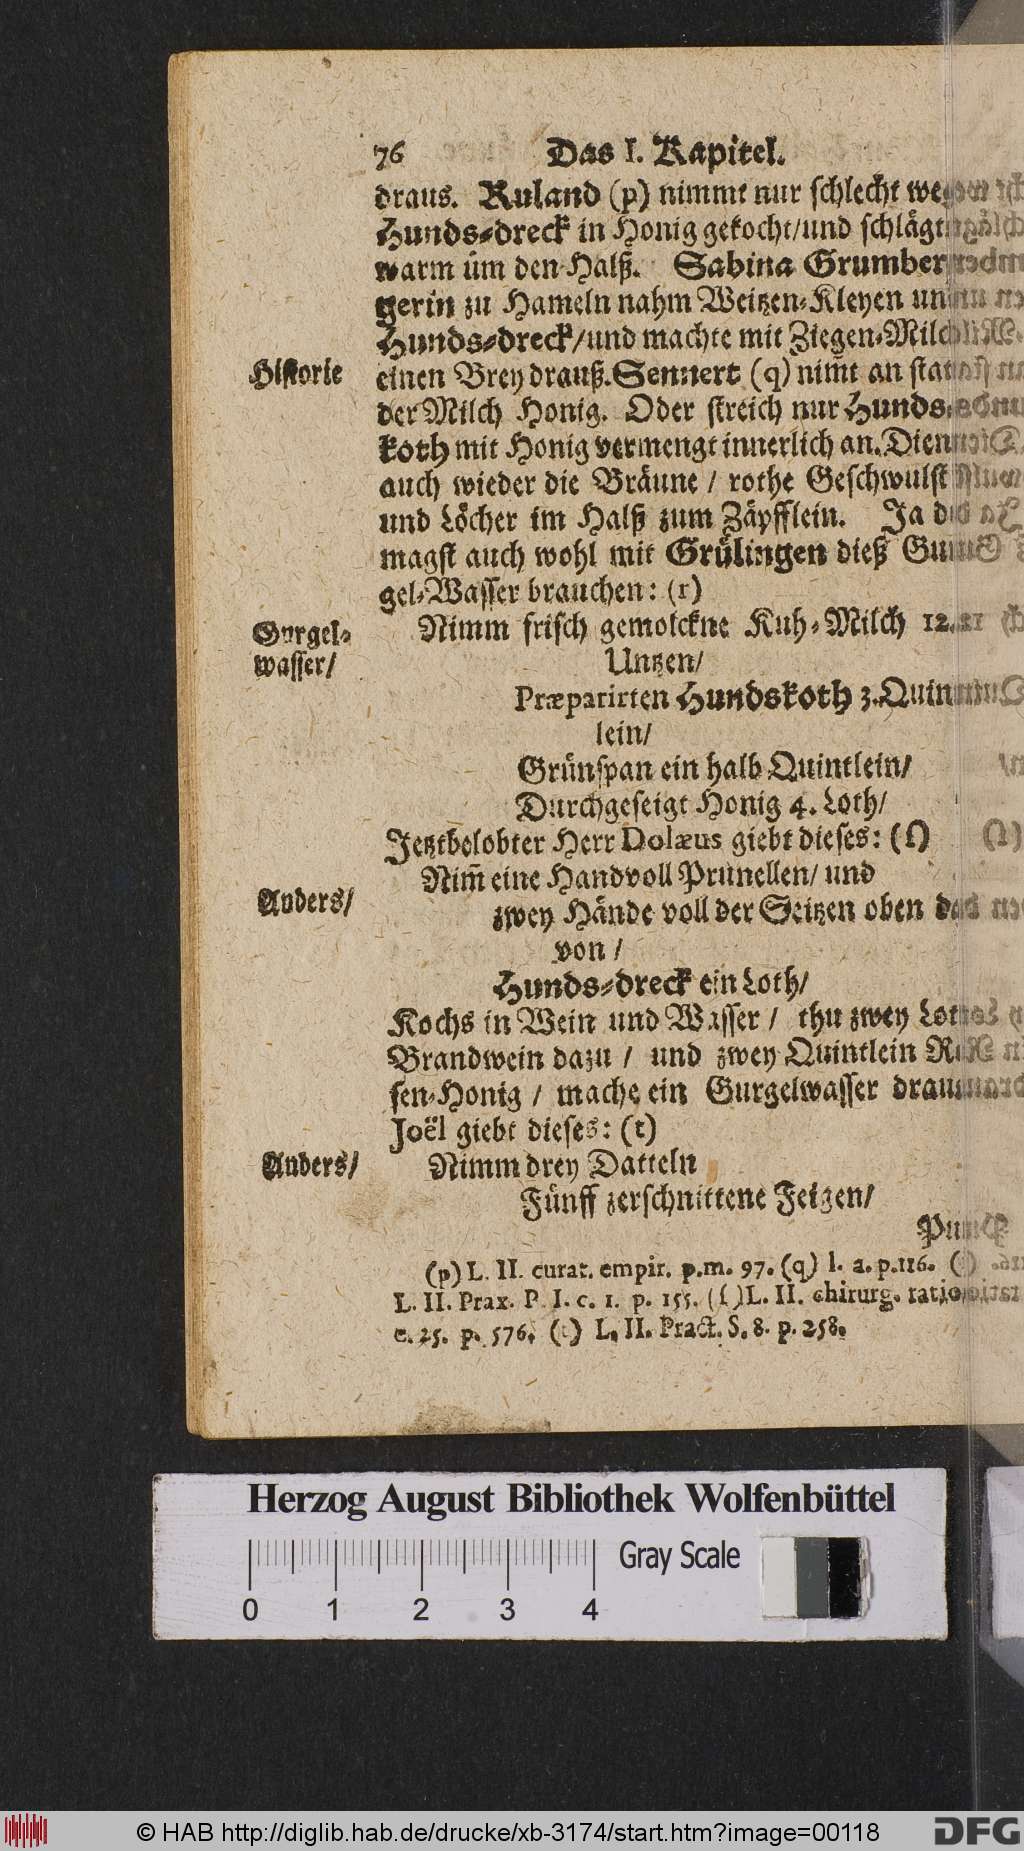 76 Das I. Kapitel.
draus. Ruland (p) nimmt nur schlecht weg
Hunds-dreck in Honig gekocht/und schlägts
warm üm den Halß. Sabina Grumber
gerin zu Hameln nahm Weitzen-Kleyen und
Hunds-dreck/und machte mit Ziegen-Milch
Historie
einen Brey drauß. Sennert (q) nim̃t an statt
der Milch Honig. Oder streich nur Hunds-
koth mit Honig vermengt innerlich an. Dient
auch wieder die Bräune / rothe Geschwulst
und Löcher im Halß zum Zäpfflein. Ja du
magst auch wohl mit Grülingen dieß Gur
gel-Wasser brauchen: (r)
Gurgel-
wasser/
Nimm frisch gemolckne Kuh-Milch 12.
Untzen/
Præparirten Hundskoth 3. Quint
lein/
Grünspan ein halb Quintlein/
Durchgeseigt Honig 4. Loth/
Jetztbelobter Herr Dolæus giebt dieses: (ſ)
Anders/
Nim̃ eine Handvoll Prunellen/ und
zwey Hände voll der Seitzen oben da
von /
Hunds-dreck ein Loth/
Kochs in Wein und Wasser / thu zwey Loth
Brandwein dazu / und zwey Quintlein Ro
sen-Honig / mache ein Gurgelwasser draus
Joël giebt dieses: (t)
Anders/
Nimm drey Datteln
Fünff zerschnittene Feigen/
(p) L. II. curat. empir. p.m. 97. (q) l. a. p. 116.
L. II. Prax. P. I. c. 1. p. 155. (ſ) L. II. chirurg. ratio
c. 25. p. 576. (t) L. II. Pract. S. 8. p. 258.
Herzog August Bibliothek Wolfenbüttel
Gray Scale
0 1 2 3 4
© HAB http://diglib.hab.de/drucke/xb-3174/start.htm?image=00118
DFG